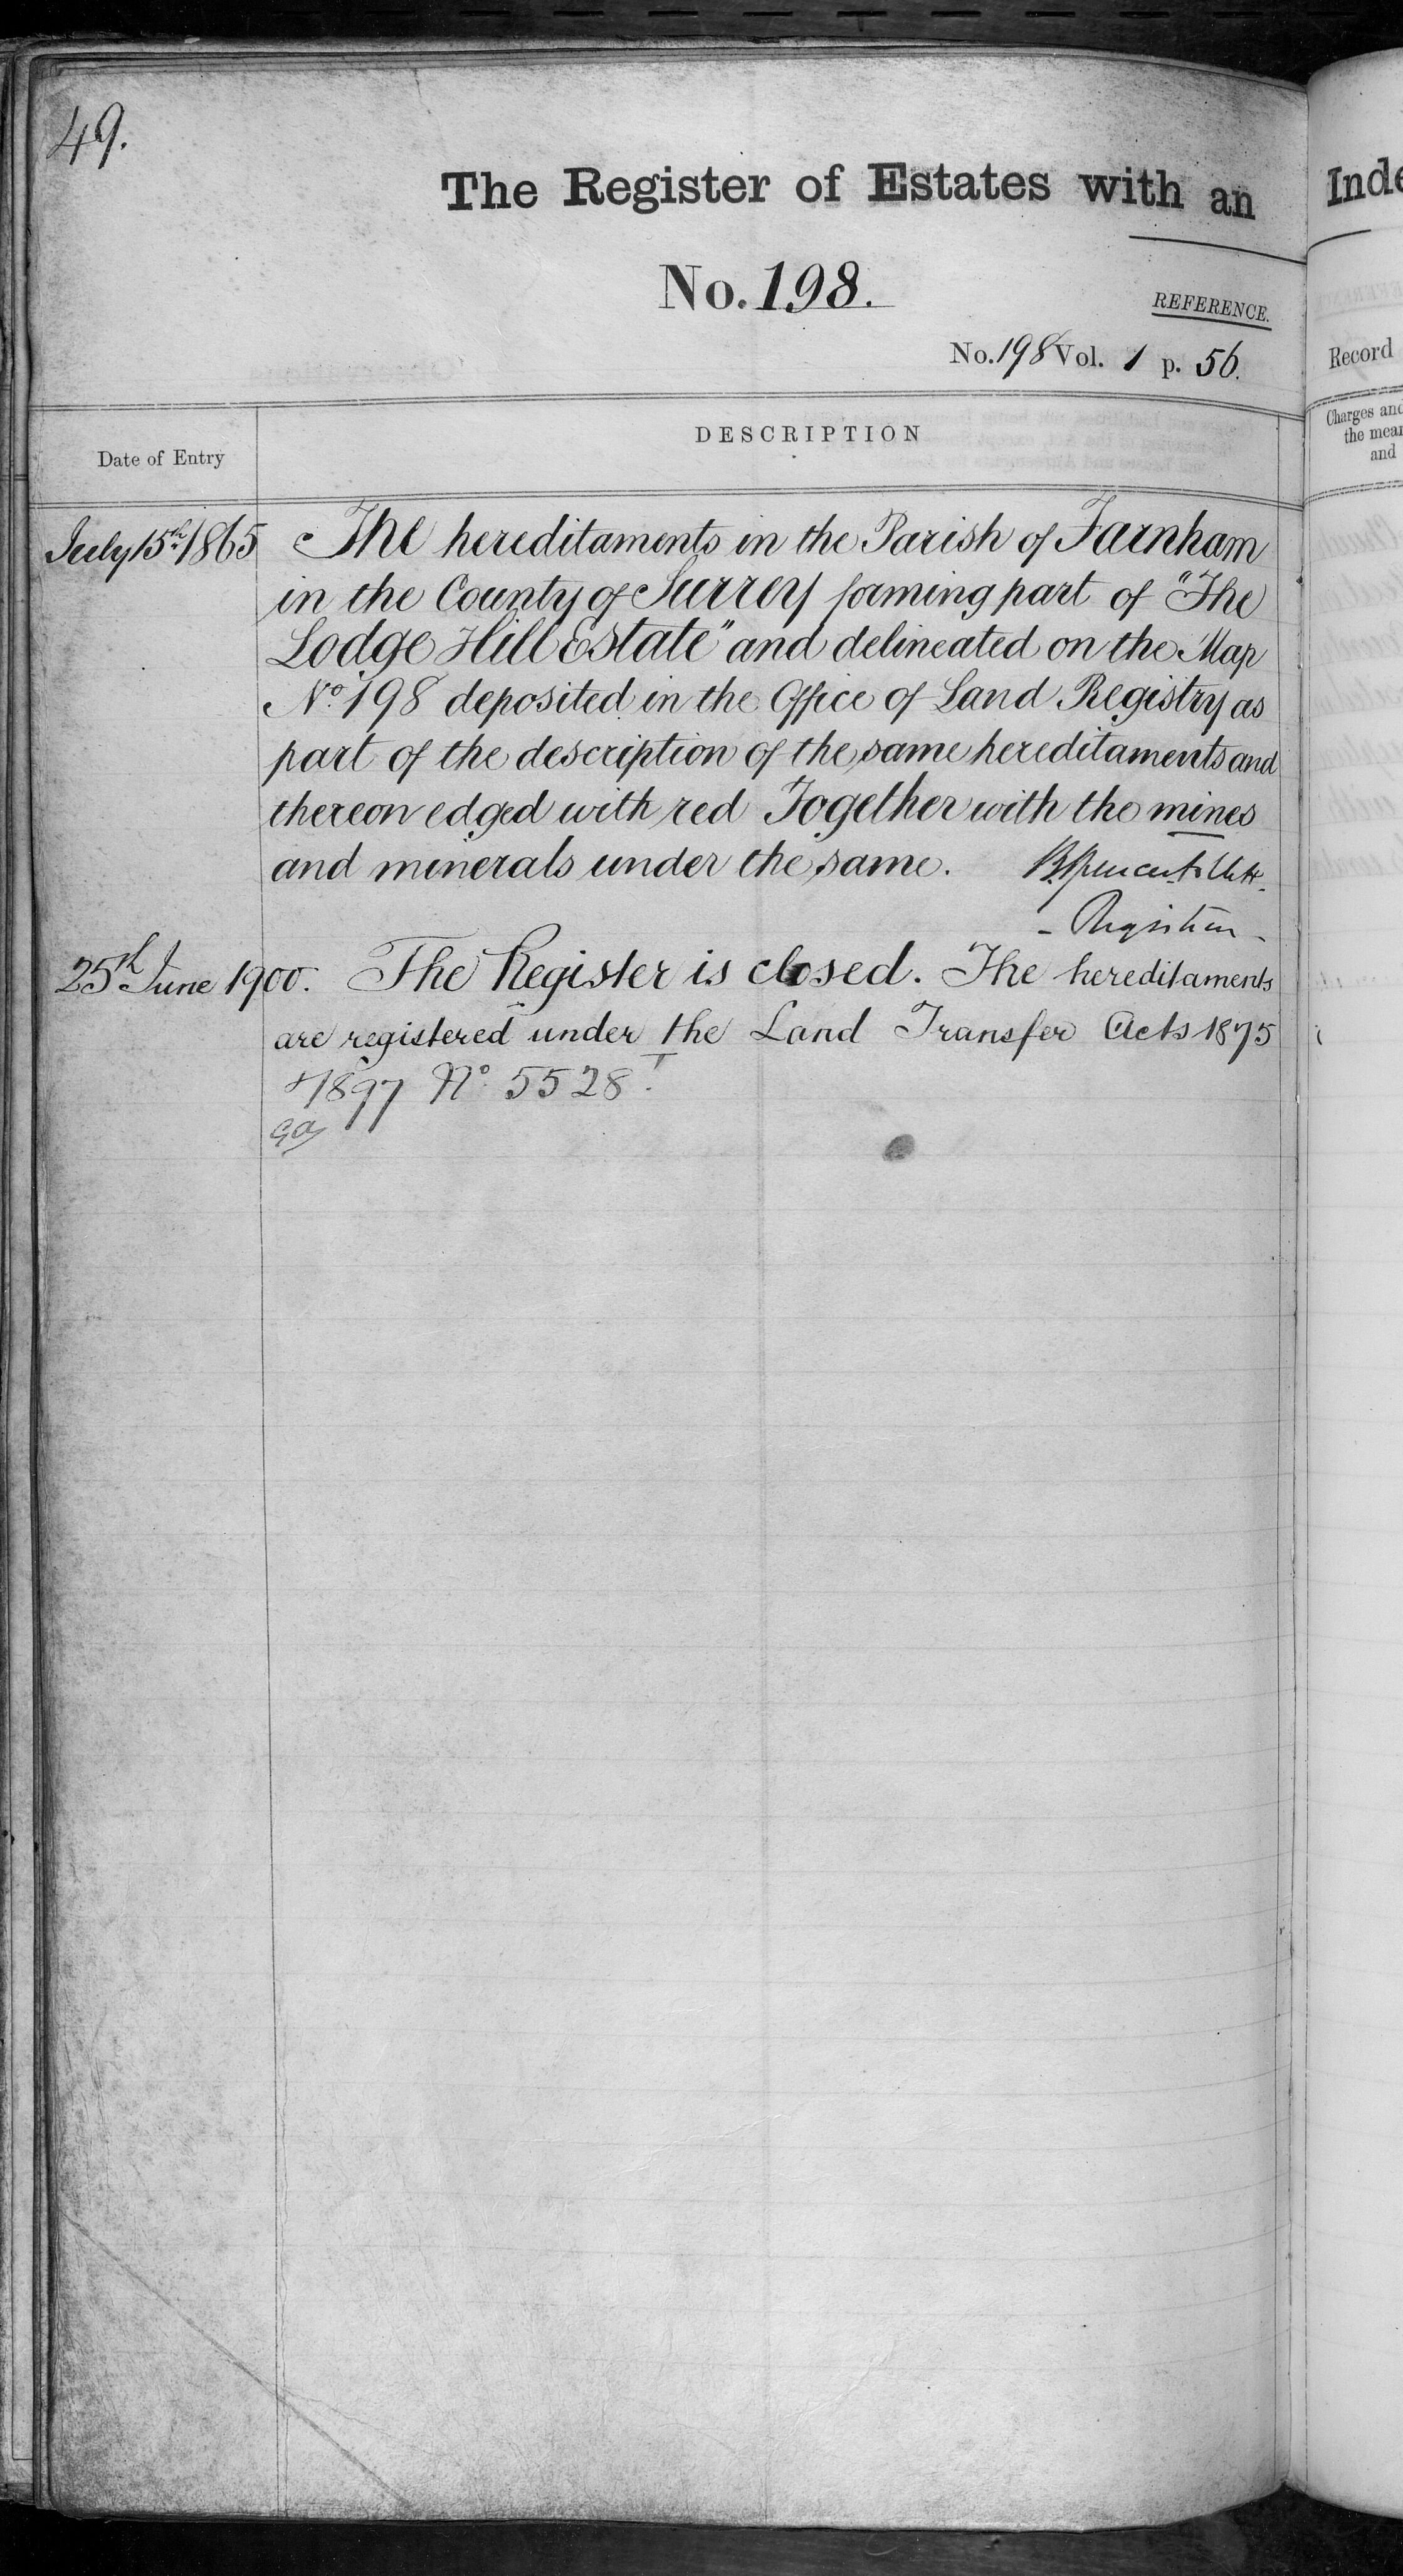 49.
The Register of Estates with an
No. 198.
REFERENCE.
No. 198 Vol. 1 p. 56.
Date of Entry
DESCRIPTION
July 15th 1865
The hereditaments in the Parish of Farnham
in the County of Surrey forming part of "The
Lodge Hill Estate" and delineated on the Map
No. 198 deposited in the Office of Land Registry as
part of the description of the same hereditaments and
thereon edged with red Together with the mines
and minerals under the same.
- Registrar -
25th June 1900. The Register is closed. The hereditaments
are registered under the Land Transfer Acts 1875
+ 1897 No. 5528.
Inde
Record
Charges and
the mea
and